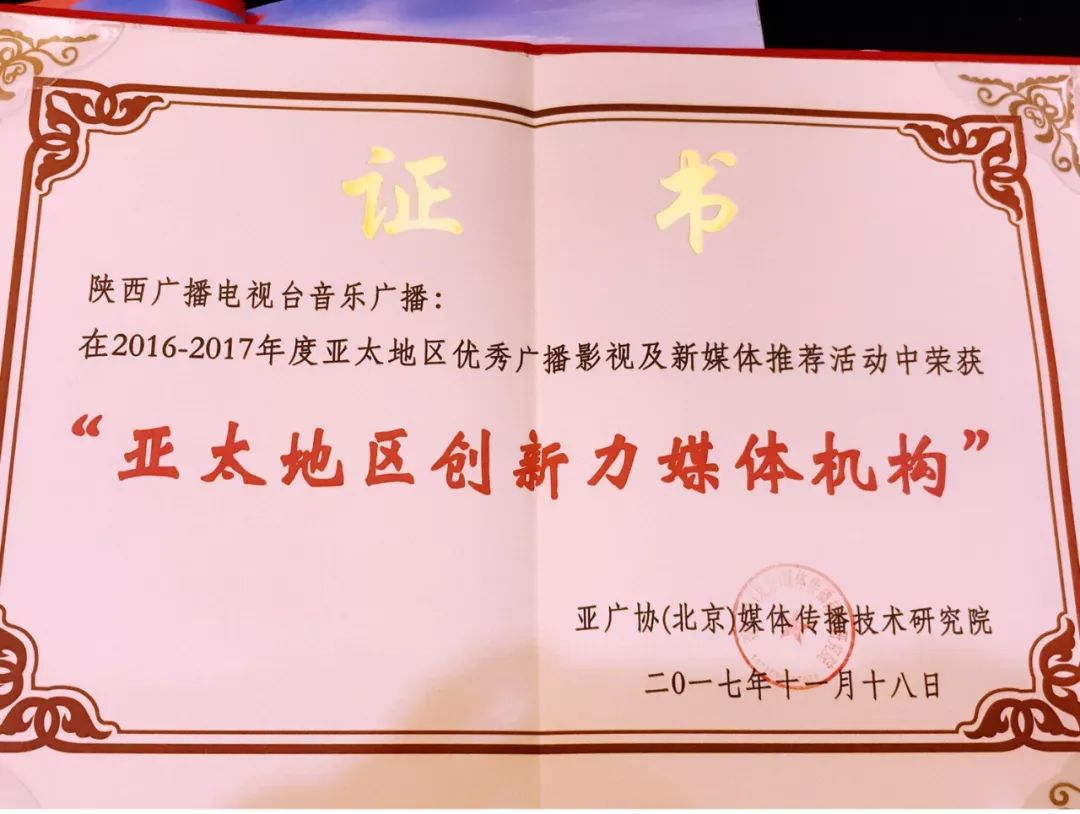 证书
陕西广播电视台音乐广播：
在2016-2017年度亚太地区优秀广播影视及新媒体推荐活动中荣获
“亚太地区创新力媒体机构”
亚广协(北京)媒体传播技术研究院
二〇一七年十一月十八日